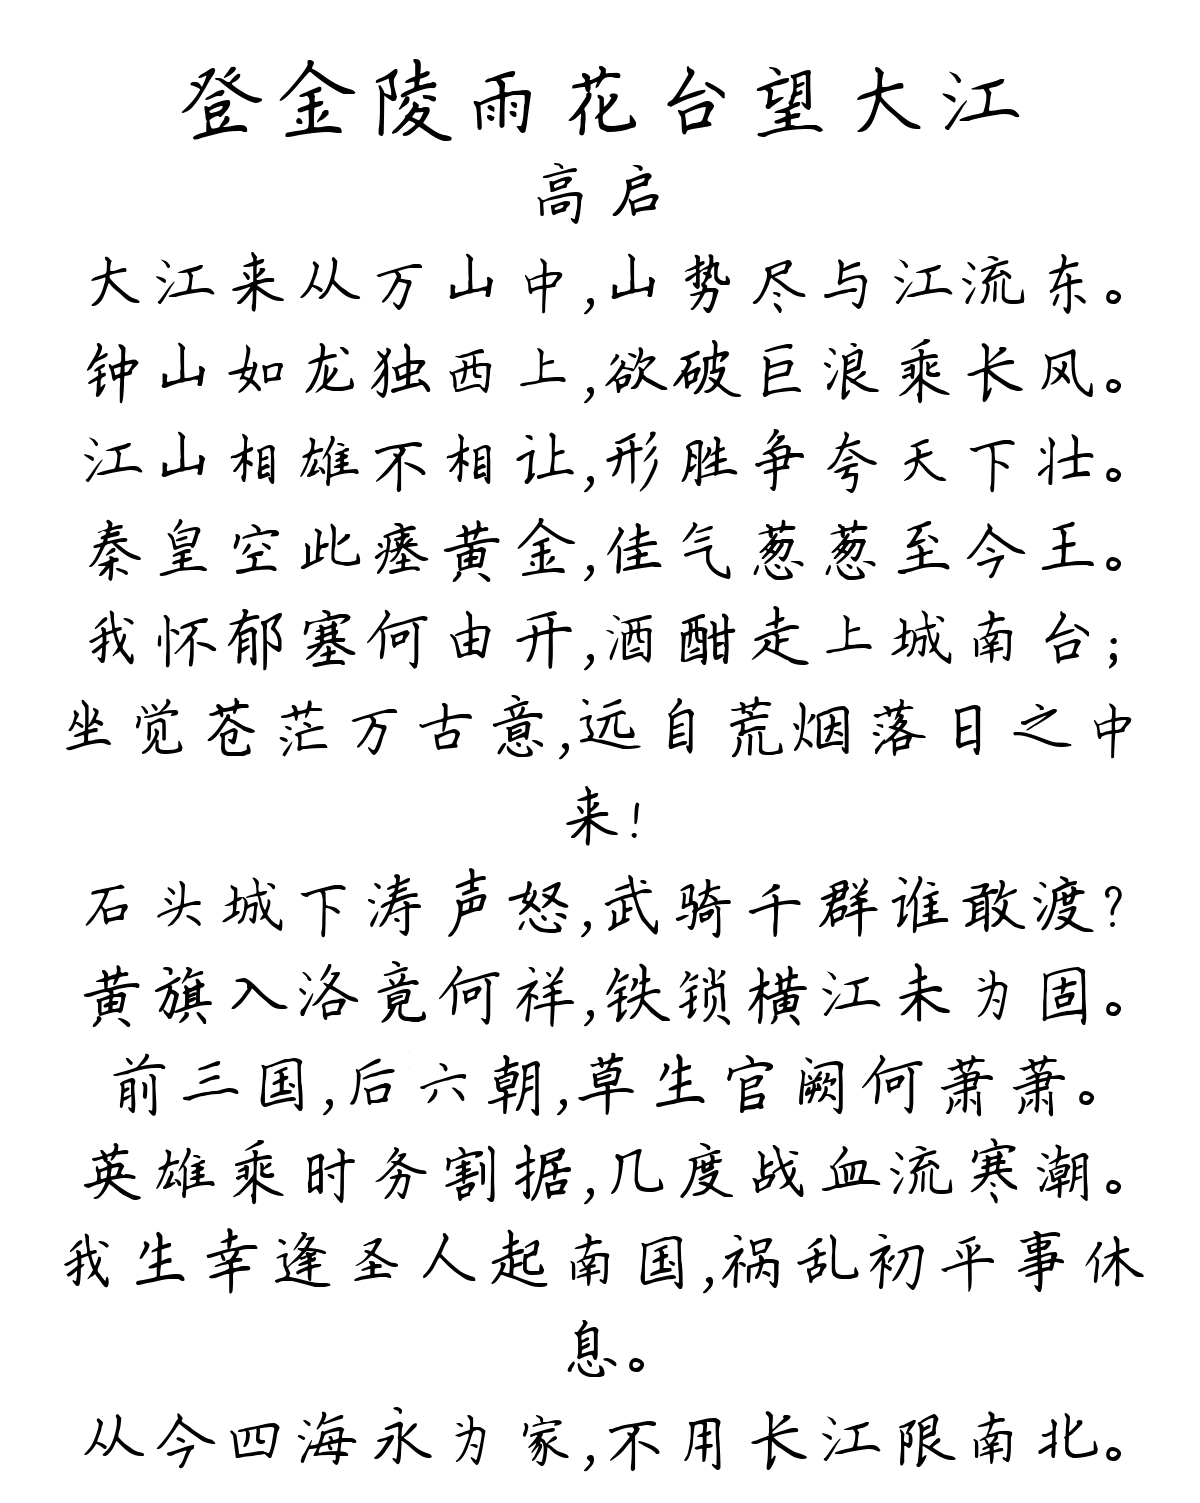 登金陵雨花台望大江
高启
大江来从万山中,山势尽与江流东。
钟山如龙独西上,欲破巨浪乘长风。
江山相雄不相让,形胜争夸天下壮。
秦皇空此瘗黄金,佳气葱葱至今王。
我怀郁塞何由开,酒酣走上城南台;
坐觉苍茫万古意,远自荒烟落日之中
来!
石头城下涛声怒,武骑千群谁敢渡?
黄旗入洛竟何祥,铁锁横江未为固。
前三国,后六朝,草生官阙何萧萧。
英雄乘时务割据,几度战血流寒潮。
我生幸逢圣人起南国,祸乱初平事休
息。
从今四海永为家,不用长江限南北。